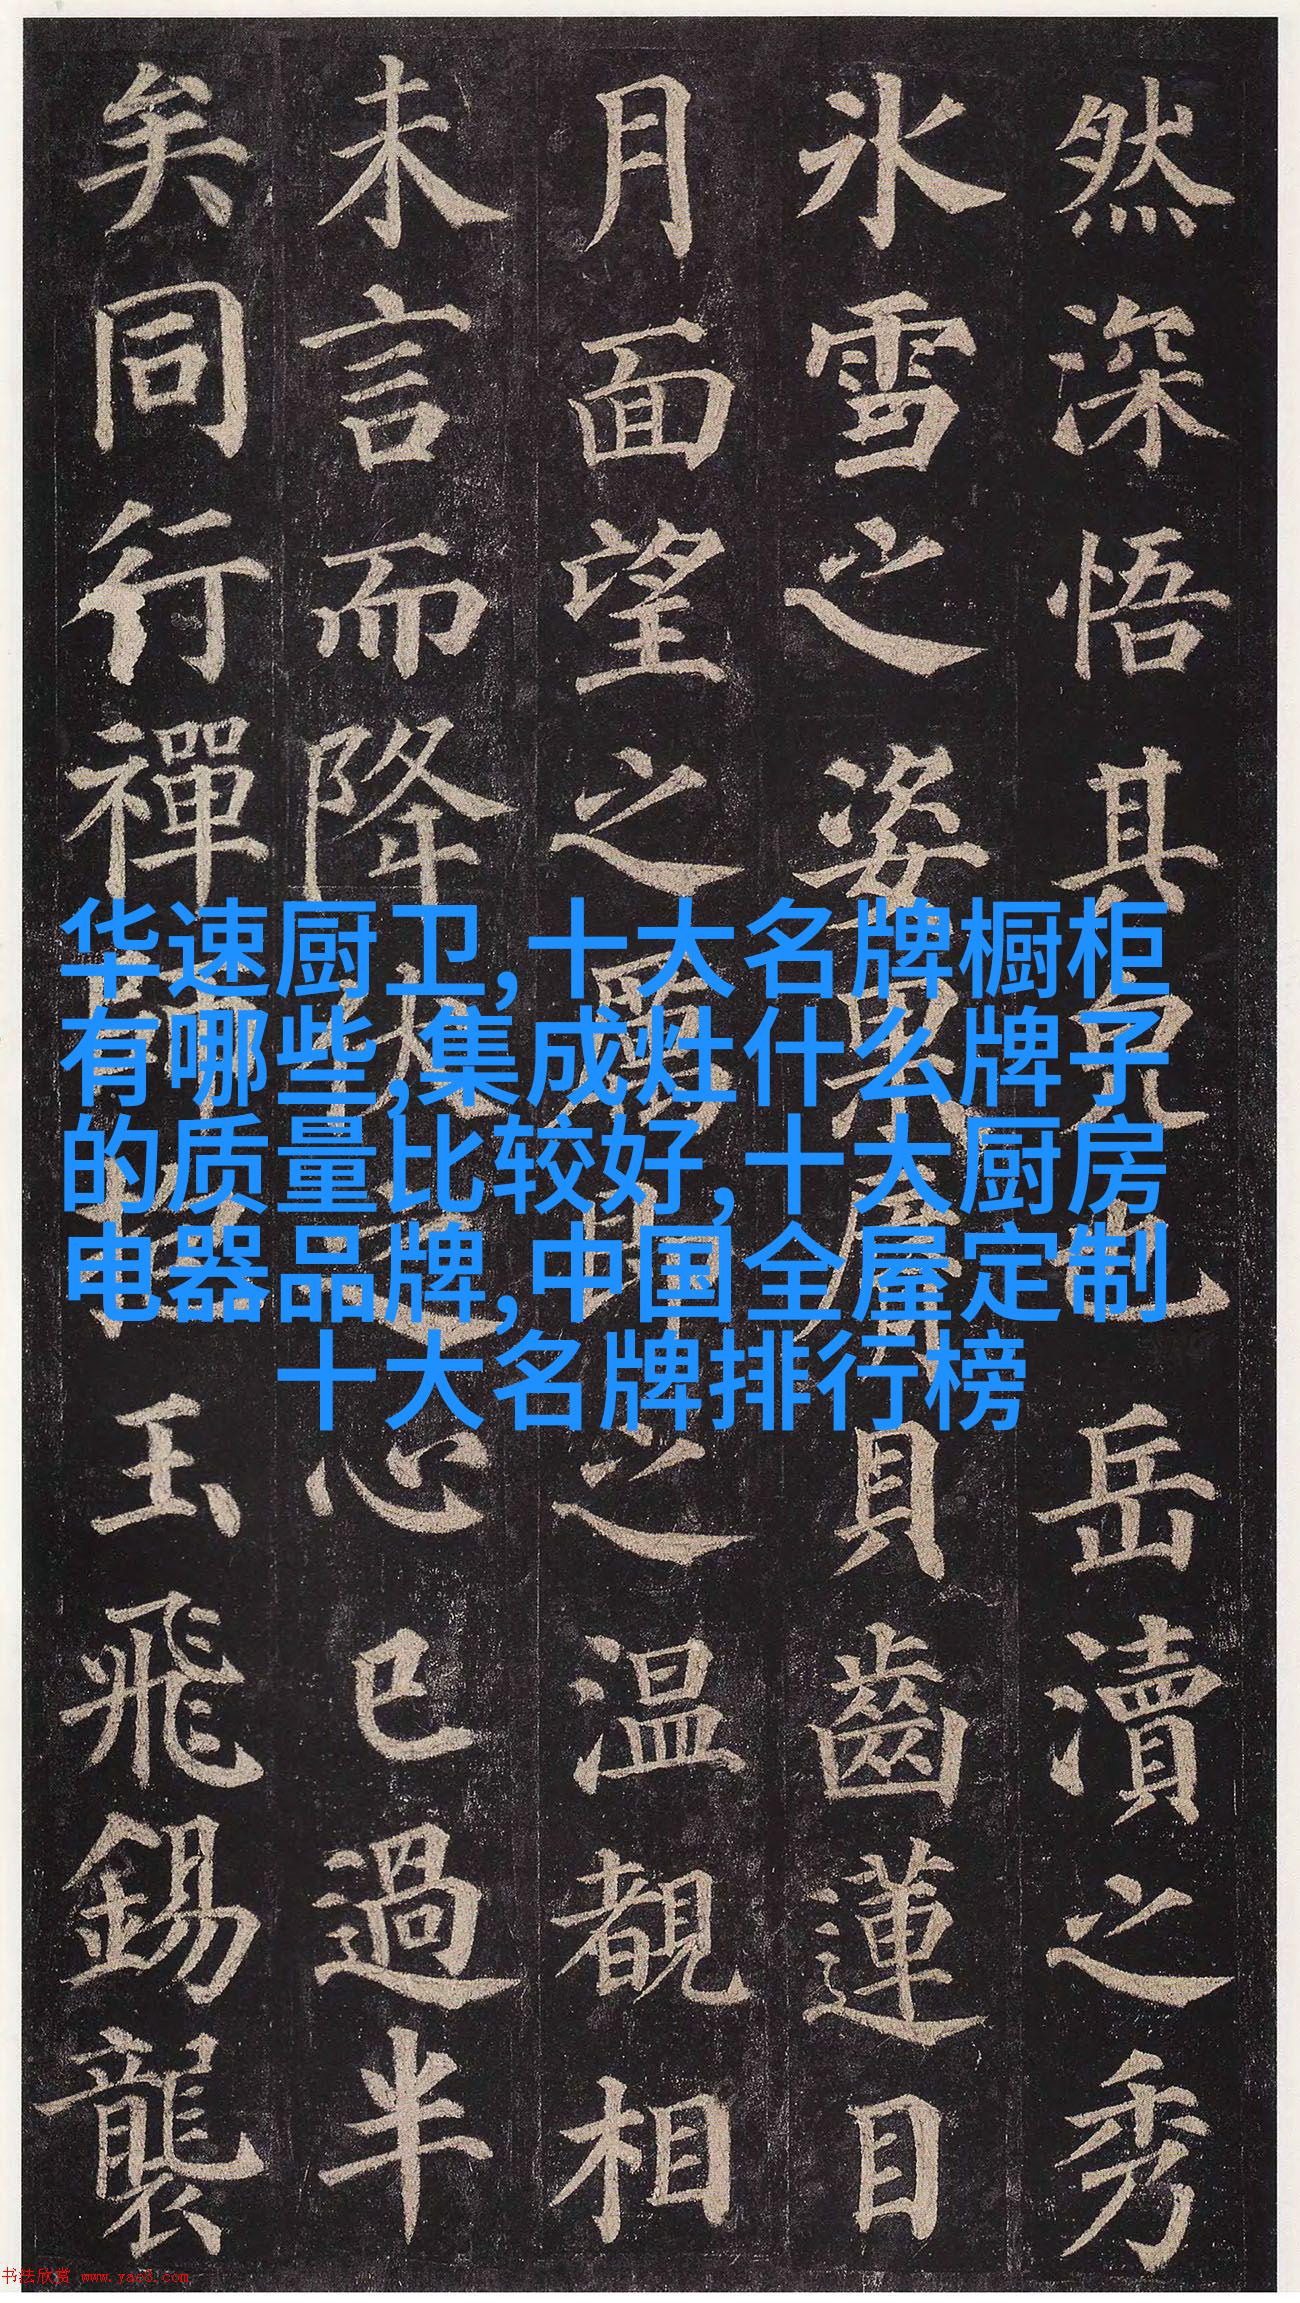 然深悟其皃也岳瀆之秀
氷雪之姿果脣貝齒蓮目
月面望之厲即之温覩相
未言而降伏之心已過半
矣同行禪師抵玉飛錫襲
华速厨卫,十大名牌橱柜
有哪些,集成灶什么牌子
的质量比较好,十大厨房
电器品牌,中国全屋定制
十大名牌排行榜
书法欣赏 www.yac8.com